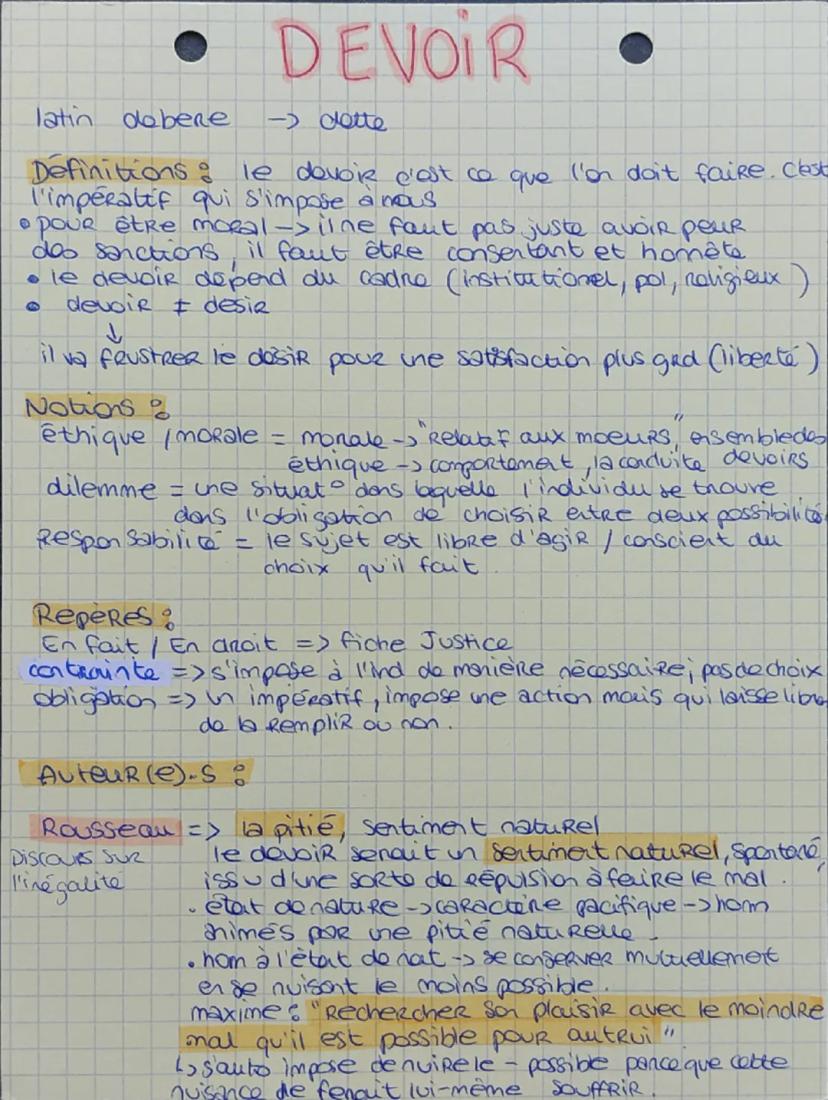 DEVOIR
latin debere -> dette
Définitions : le devoir c'est ce que l'on doit faire. C'est
l'impératif qui s'impose à nous
• pour être moral -> il ne faut pas juste avoir peur
des sanctions, il faut être consentant et honête
• le devoir dépend du cadre (institutionel, pol, religieux)
• devoir ≠ désir
↓
il va frustrer le désir pour une satisfaction plus grd (liberté)
Notions :
éthique / morale = morale -> "relatif aux moeurs", ensemble des
éthique -> comportement, la conduite devoirs
dilemme = une situat° dans laquelle l'individu se trouve
dans l'obligation de choisir entre deux possibilité
Responsabilité = le sujet est libre d'agir / conscient du
choix qu'il fait.
Repères :
En fait / En droit => fiche Justice
contrainte => s'impose à l'ind de manière nécessaire; pas de choix
obligation => un impératif, impose une action mais qui laisse libre
de la remplir ou non.
Auteur(e).s :
Rousseau => la pitié, sentiment naturel
Discours sur le devoir serait un sentiment naturel, spontané,
l'inégalité issu d'une sorte de répulsion à faire le mal.
. état de nature -> caractère pacifique -> hom
animés par une pitié naturelle.
. hom à l'état de nat -> se conserver mutuellement
en se nuisant le moins possible.
maxime : "Rechercher son plaisir avec le moindre
mal qu'il est possible pour autrui"
↳ s'auto impose de nuire le - possible parce que cette
nuisance de ferait lui-même souffrir.